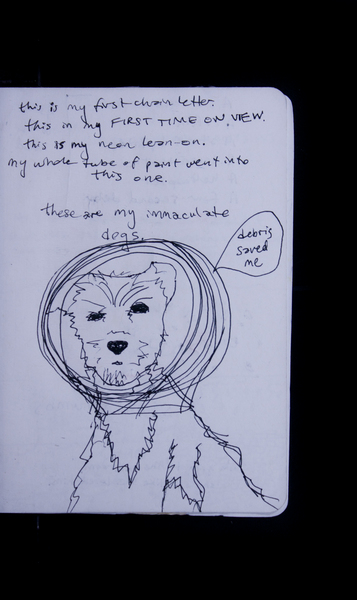 this is my first chain letter.
this in my FIRST TIME ON VIEW.
this is my neon lean-on.
my whole tube of paint went into
this one.
these are my immaculate
dogs.
debris
saved
me